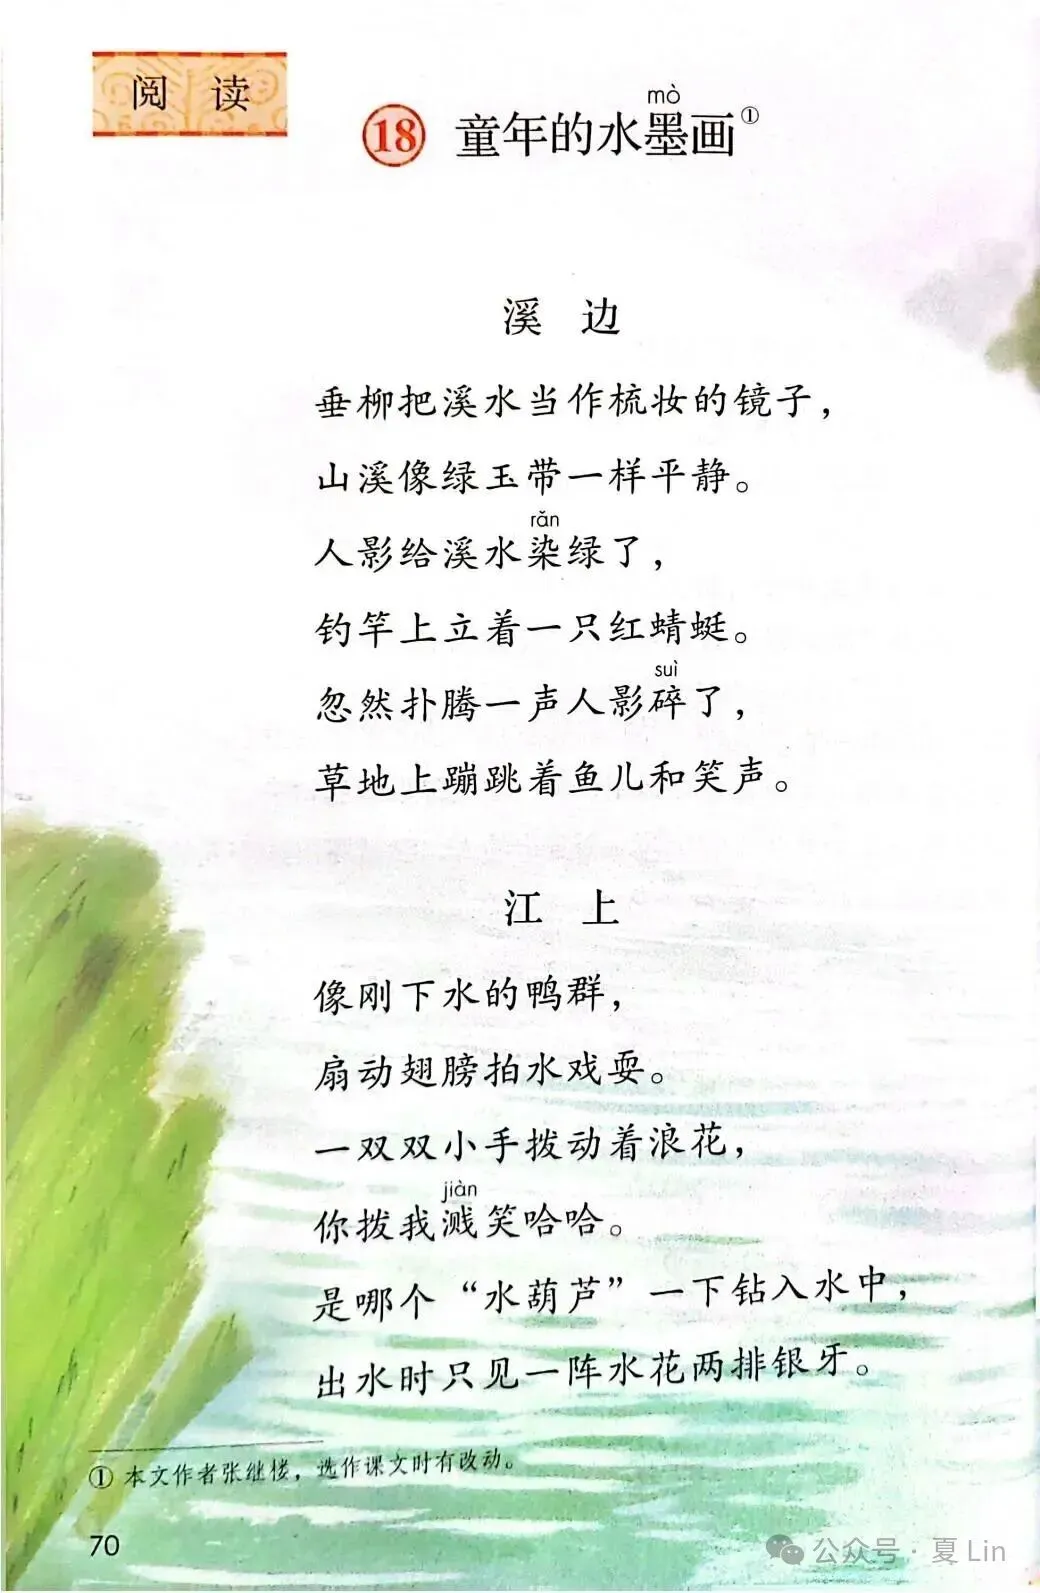 阅 读
mò
18 童年的水墨画①
溪 边
垂柳把溪水当作梳妆的镜子，
山溪像绿玉带一样平静。
rǎn
人影给溪水染绿了，
钓竿上立着一只红蜻蜓。
suì
忽然扑腾一声人影碎了，
草地上蹦跳着鱼儿和笑声。
江 上
像刚下水的鸭群，
扇动翅膀拍水戏耍。
一双双小手拨动着浪花，
jiàn
你拨我溅笑哈哈。
是哪个“水葫芦”一下钻入水中，
出水时只见一阵水花两排银牙。
① 本文作者张继楼，选作课文时有改动。
70
公众号·夏 Lin